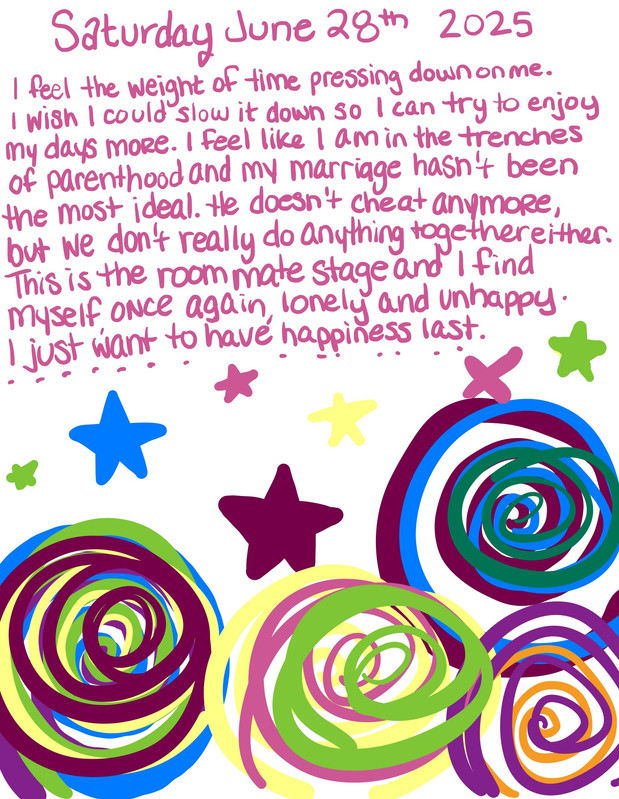 Saturday June 28th 2025
I feel the weight of time pressing down on me.
I wish I could slow it down so I can try to enjoy
my days more. I feel like I am in the trenches
of parenthood and my marriage hasn't been
the most ideal. He doesn't cheat anymore,
but we don't really do anything together either.
This is the room mate stage and I find
myself once again, lonely and unhappy.
I just want to have happiness last.